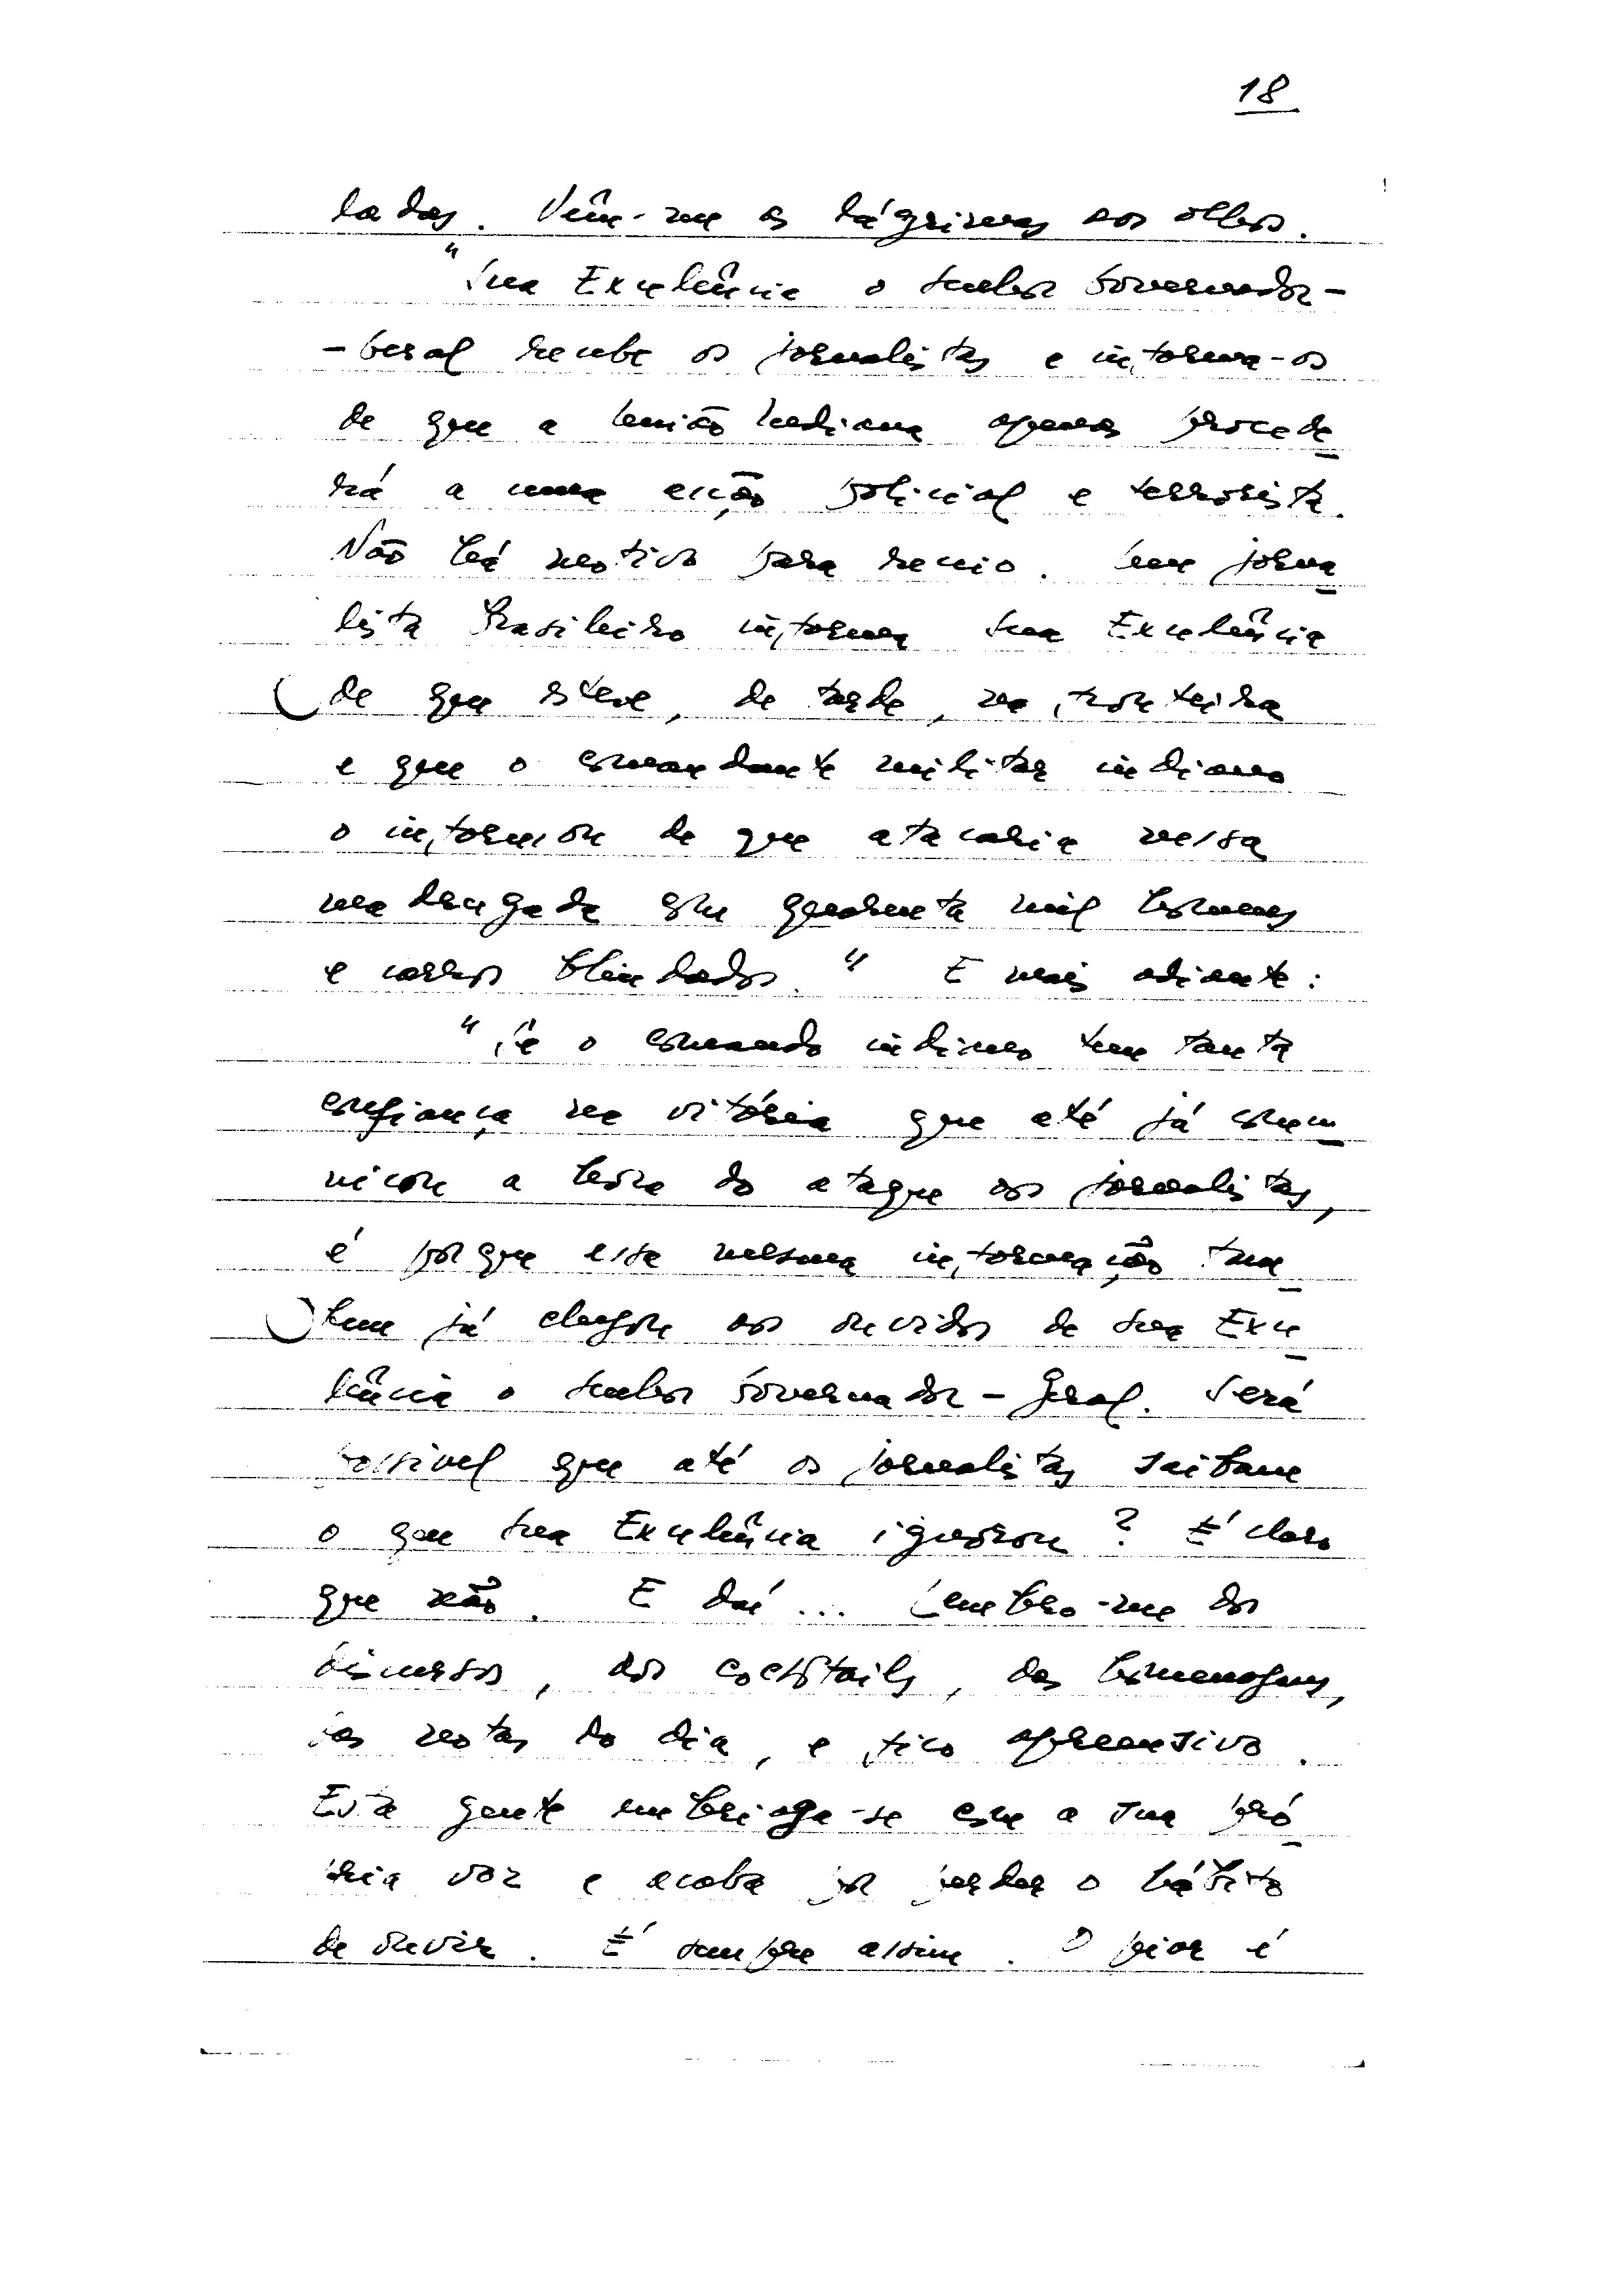 18
ladas. Vêm-me as lágrimas aos olhos.
"Sua Excelência o senhor Governador-
-Geral recebe os jornalistas e informa-os
de que a União Indiana apenas procede
rá a uma acção policial e terrorista.
Não há motivo para receio. Um jorna
lista brasileiro informa Sua Excelência
de que esteve, de tarde, na fronteira
e que o comandante militar indiano
o informou de que atacaria nessa
madrugada com quarenta mil homens
e carros blindados." E mais adiante:
"Se o comando indiano tem tanta
confiança na vitória que até já comu
nicou a hora do ataque aos jornalistas,
é porque essa mesma informação tam
bém já chegou aos ouvidos de Sua Exce
lência o senhor Governador-Geral. Será
possível que até os jornalistas saibam
o que Sua Excelência ignorou? É claro
que não. E daí... Lembro-me dos
discursos, dos cocktails, das homenagens,
das notas do dia, e fico apreensivo.
Esta gente embriaga-se com a sua pró
pria voz e acaba por perder o hábito
de ouvir. É sempre assim. O pior é